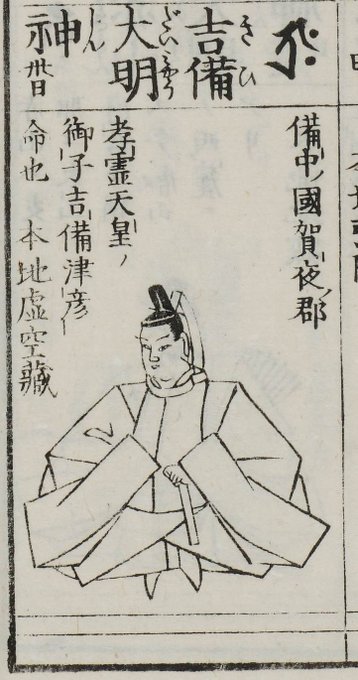 吉備
きひ
大明
だいみやう
神
備中ノ國賀夜郡
孝霊天皇ノ
御子吉備津彦
命也 本地虚空藏